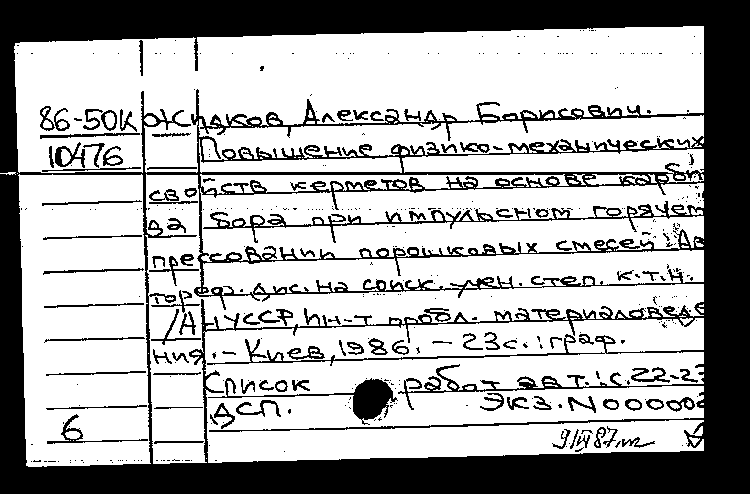 86-50К Жидков, Александр Борисович.
10476 Повышение физико-механических
свойств керметов на основе карби
да бора при импульсном горячем
прессовании порошковых смесей: Ав
тореф. дис. на соиск. учен. степ. к.т.н.
/АН УССР, Ин-т пробл. материаловеде
ния. - Киев, 1986. - 23с.: граф.
Список работ авт.: с.22-23
ДСП. Экз. N 000002
6